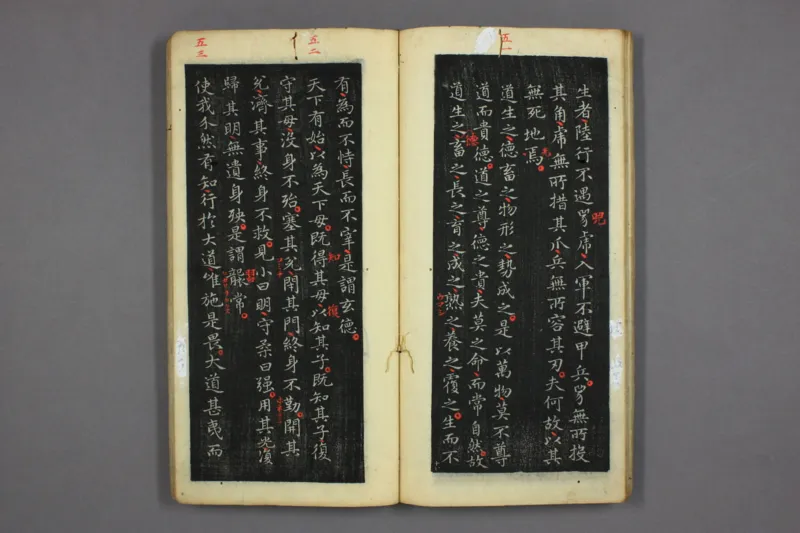 五一
生者陸行不遇兕虎入軍不避甲兵兕無所投
其角虎無所措其爪兵無所容其刃夫何故以其
無死地焉
道生之德畜之物形之勢成之是以萬物莫不尊
道而貴德道之尊德之貴夫莫之命而常自然故
道生之畜之長之育之成之熟之養之覆之生而不
五二
五三
有為而不恃長而不宰是謂玄德
天下有始以為天下母既得其母以知其子既知其子復
守其母沒身不殆塞其兌閉其門終身不勤開其
兌濟其事終身不救見小曰明守柔曰强用其光復
歸其明無遺身殃是謂襲常
使我介然有知行於大道唯施是畏大道甚夷而